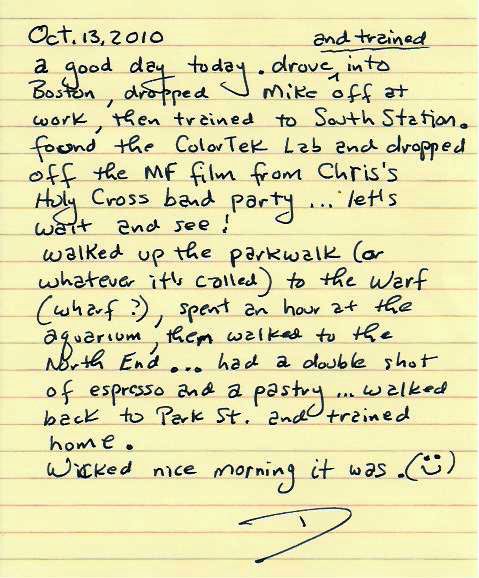 Oct. 13, 2010
and trained
a good day today. drove ^ into
Boston, dropped Mike off at
work, then trained to South Station.
found the ColorTek Lab and dropped
off the MF film from Chris's
Holy Cross band party... let's
wait and see!
walked up the parkwalk (or
whatever it's called) to the Warf
(wharf?), spent an hour at the
aquarium, then walked to the
North End... had a double shot
of espresso and a pastry... walked
back to Park St. and trained
home.
Wicked nice morning it was. (:)
D